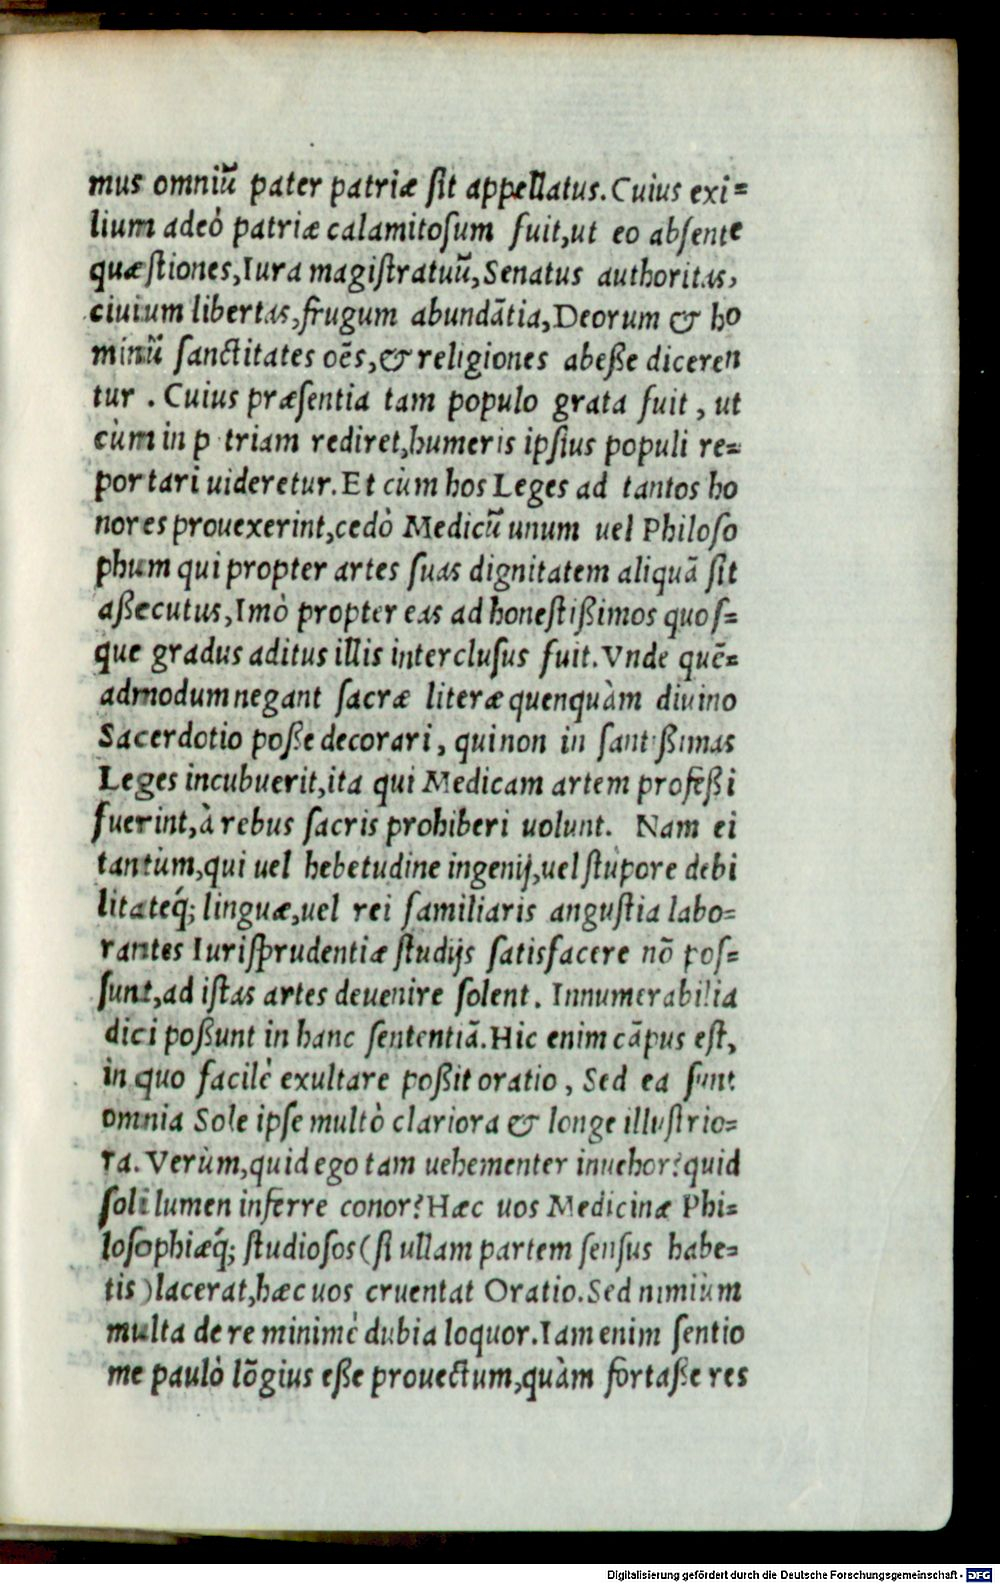 mus omniũ pater patriæ ſit appellatus. Cuius exi=
lium adeò patriæ calamitoſum fuit, ut eo abſente
quæſtiones, Iura magiſtratuũ, Senatus authoritas,
ciuium libertas, frugum abundãtia, Deorum & ho
minũ ſanctitates oẽs, & religiones abeſſe diceren
tur . Cuius præſentia tam populo grata fuit, ut
cùm in p triam rediret, humeris ipſius populi re=
portari uideretur. Et cùm hos Leges ad tantos ho
nores prouexerint, cedò Medicũ unum uel Philoſo
phum qui propter artes ſuas dignitatem aliquã ſit
aßecutus, Imò propter eas ad honeſtißimos quoſ=
que gradus aditus illis intercluſus fuit. Vnde quẽ=
admodum negant ſacræ literæ quenquàm diuino
Sacerdotio poße decorari, qui non in ſantißimas
Leges incubuerit, ita qui Medicam artem profeßi
fuerint, à rebus ſacris prohiberi uolunt. Nam ei
tantùm, qui uel hebetudine ingenij, uel ſtupore debi
litateq́; linguæ, uel rei familiaris anguſtia labo=
rantes Iuriſprudentiæ ſtudijs ſatisfacere nõ poſ=
ſunt, ad iſtas artes deuenire ſolent. Innumerabilia
dici poßunt in hanc ſententiã. Hic enim cãpus eſt,
in quo facilè exultare poßit oratio, Sed ea ſunt
omnia Sole ipſe multò clariora & longe illuſtrio=
ra. Verùm, quid ego tam uehementer inuehor? quid
ſoli lumen inferre conor? Hæc uos Medicinæ Phi=
loſophiæq́; ſtudioſos (ſi ullam partem ſenſus habe=
tis) lacerat, hæc uos cruentat Oratio. Sed nimiùm
multa de re minimè dubia loquor. Iam enim ſentio
me paulò lõgius eße prouectum, quàm fortaße res
Digitalisierung gefördert durch die Deutsche Forschungsgemeinschaft - DFG